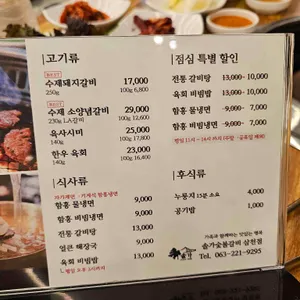 고기류
BEST
수제돼지갈비 17,000
250g 100g 6,800
BEST
수제 소양념갈비 29,000
230g L.A갈비 100g 12,600
육사시미 25,000
140g 100g 17,800
한우 육회 23,000
140g 100g 16,400
식사류
함흥 물냉면 9,000
함흥 비빔냉면 9,000
전통 갈비탕 13,000
얼큰 해장국 9,000
육회 비빔밥 13,000
점심 특별 할인
전통 갈비탕 13,000→ 10,000
육회 비빔밥 13,000→ 10,000
함흥 물냉면 9,000→ 7,000
함흥 비빔냉면 9,000→ 7,000
평일 11시 ~ 14시 까지 (주말·공휴일 제외)
후식류
누룽지 15분 소요 4,000
공기밥 1,000
가족과 함께하는 맛있는 행복
솔가숯불갈비 삼천점
Tel. 063-221-9295